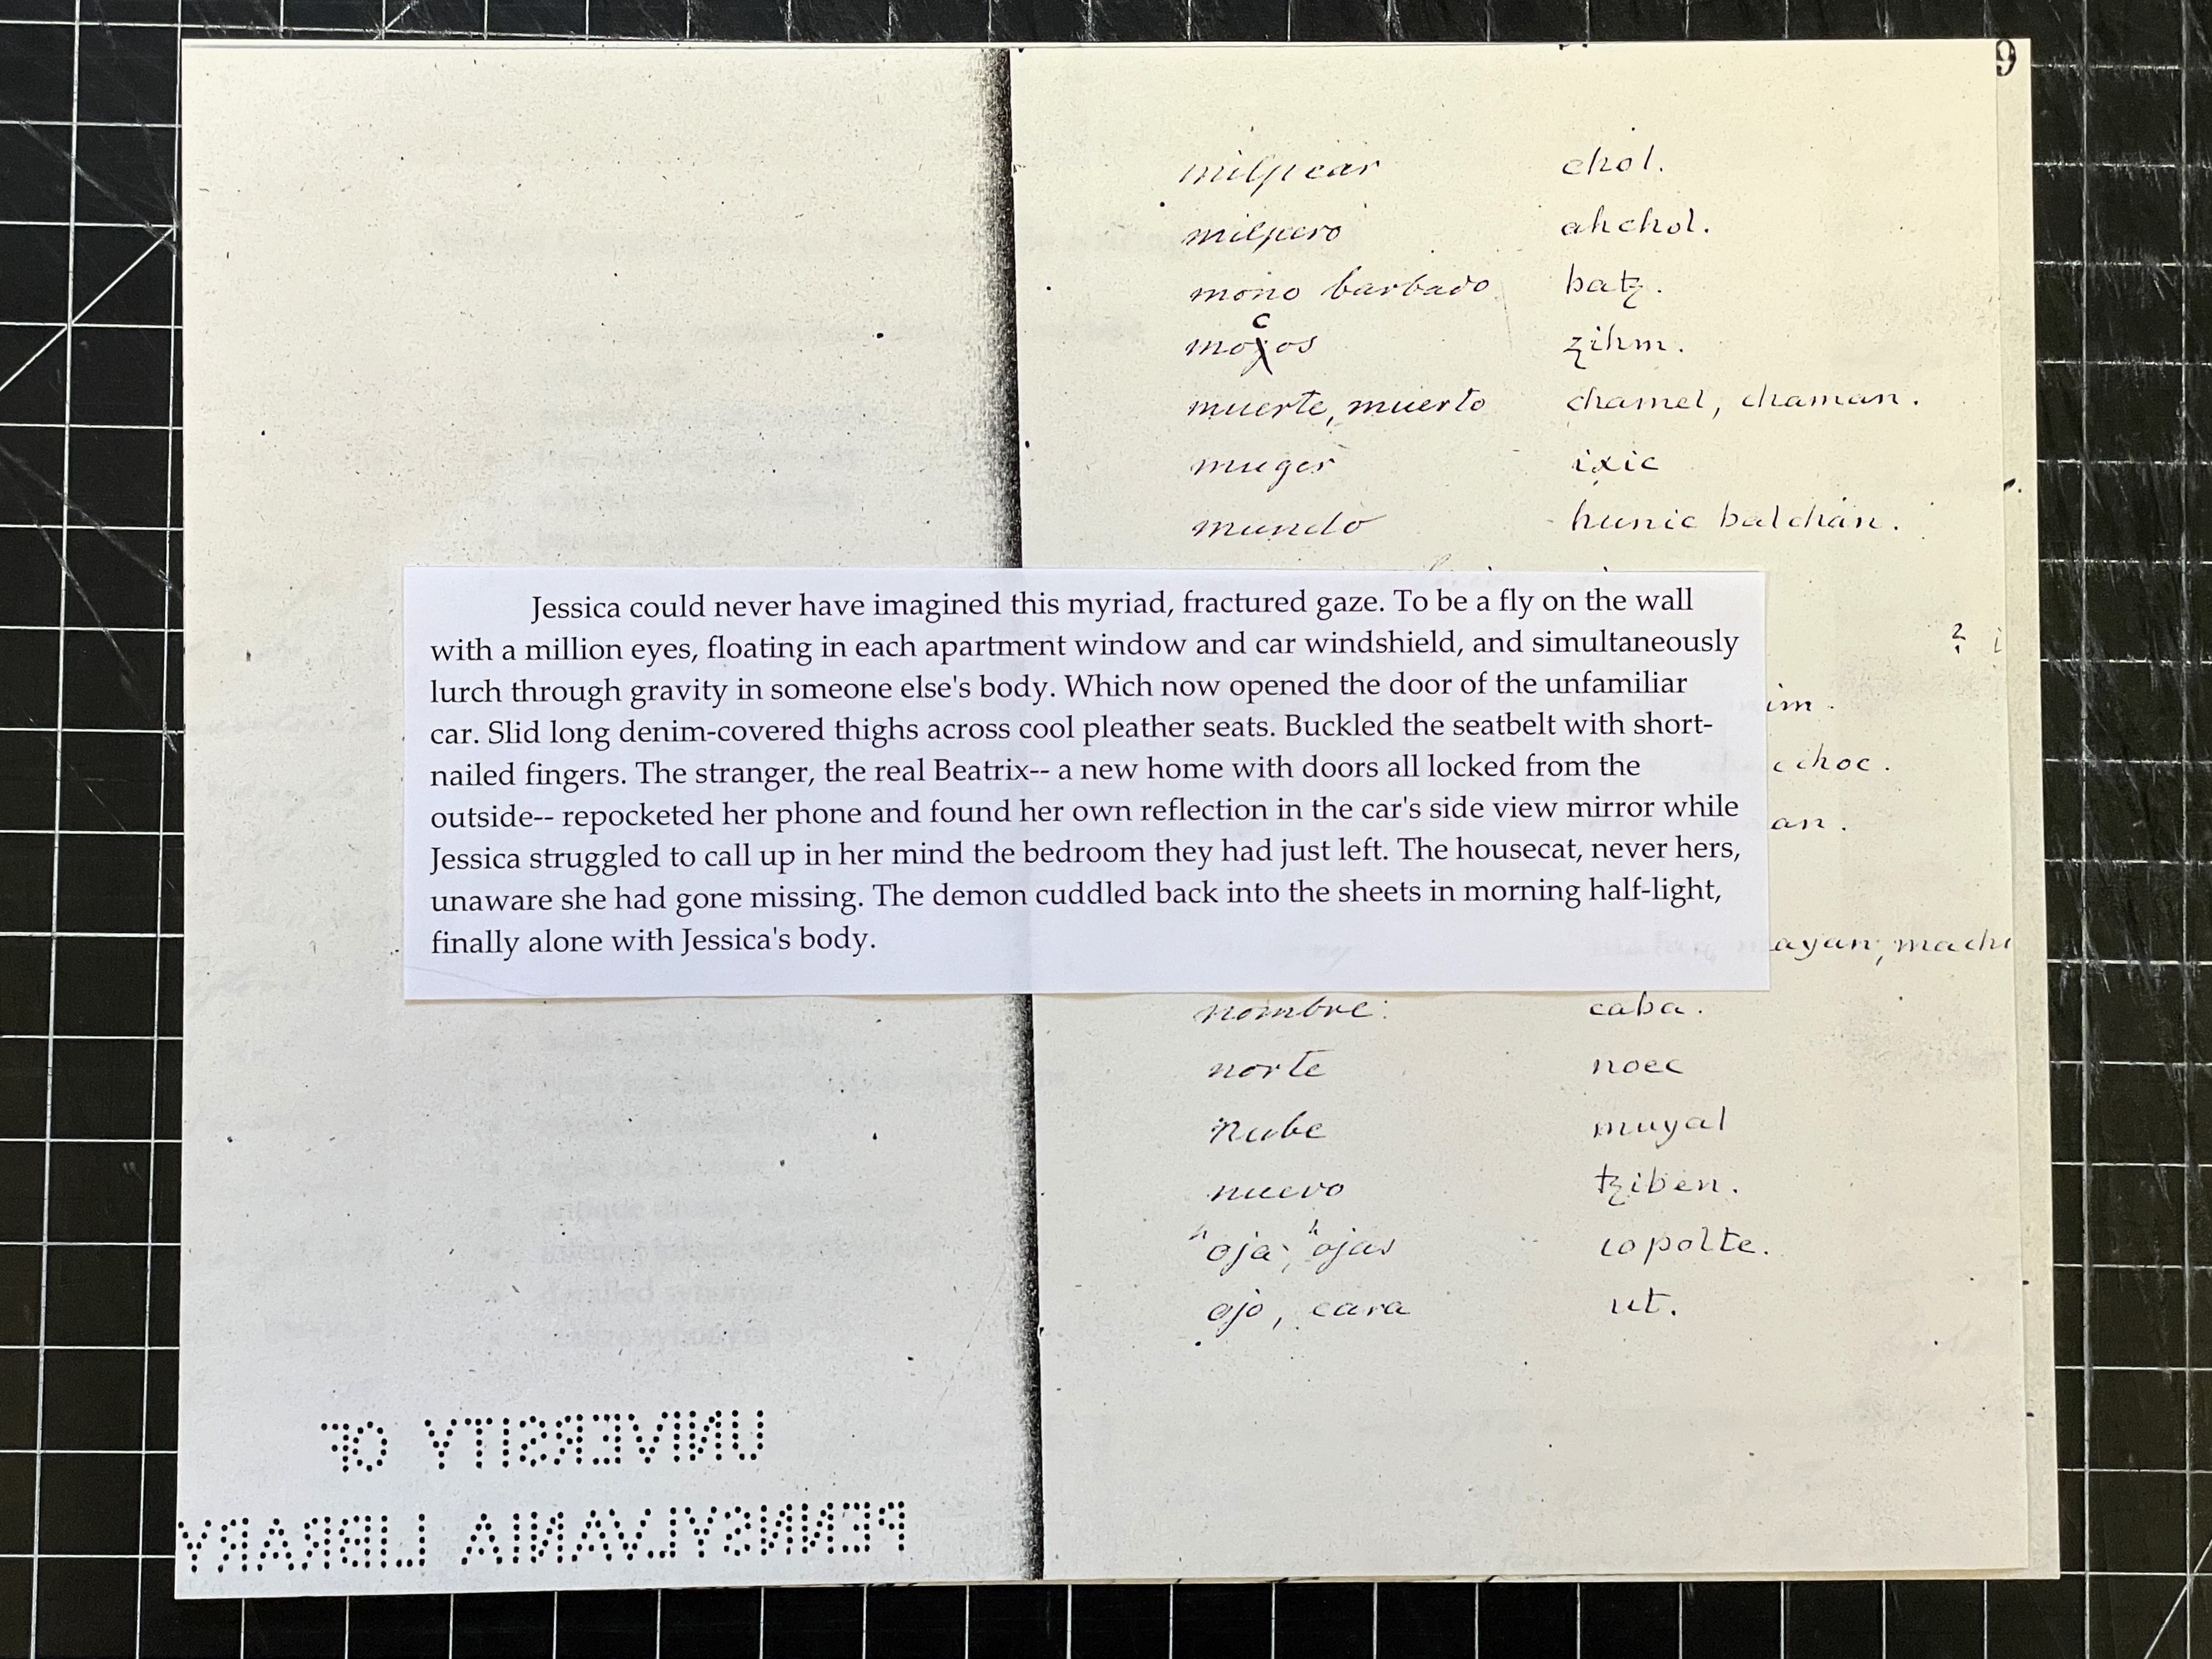 9
milpear chol.
milpero ahchol.
mono barbado batz.
c
mojos zihm.
muerte, muerto chamel, chaman.
muger ixic
mundo hunic balchan.
Jessica could never have imagined this myriad, fractured gaze. To be a fly on the wall
with a million eyes, floating in each apartment window and car windshield, and simultaneously
lurch through gravity in someone else's body. Which now opened the door of the unfamiliar
car. Slid long denim-covered thighs across cool pleather seats. Buckled the seatbelt with short-
nailed fingers. The stranger, the real Beatrix-- a new home with doors all locked from the
outside-- repocketed her phone and found her own reflection in the car's side view mirror while
Jessica struggled to call up in her mind the bedroom they had just left. The housecat, never hers,
unaware she had gone missing. The demon cuddled back into the sheets in morning half-light,
finally alone with Jessica's body.
nombre: caba.
norte noec
nube muyal
nuevo tziben.
hoja, hojas copolte.
ojo, cara ut.
UNIVERSITY OF
PENNSYLVANIA LIBRARY